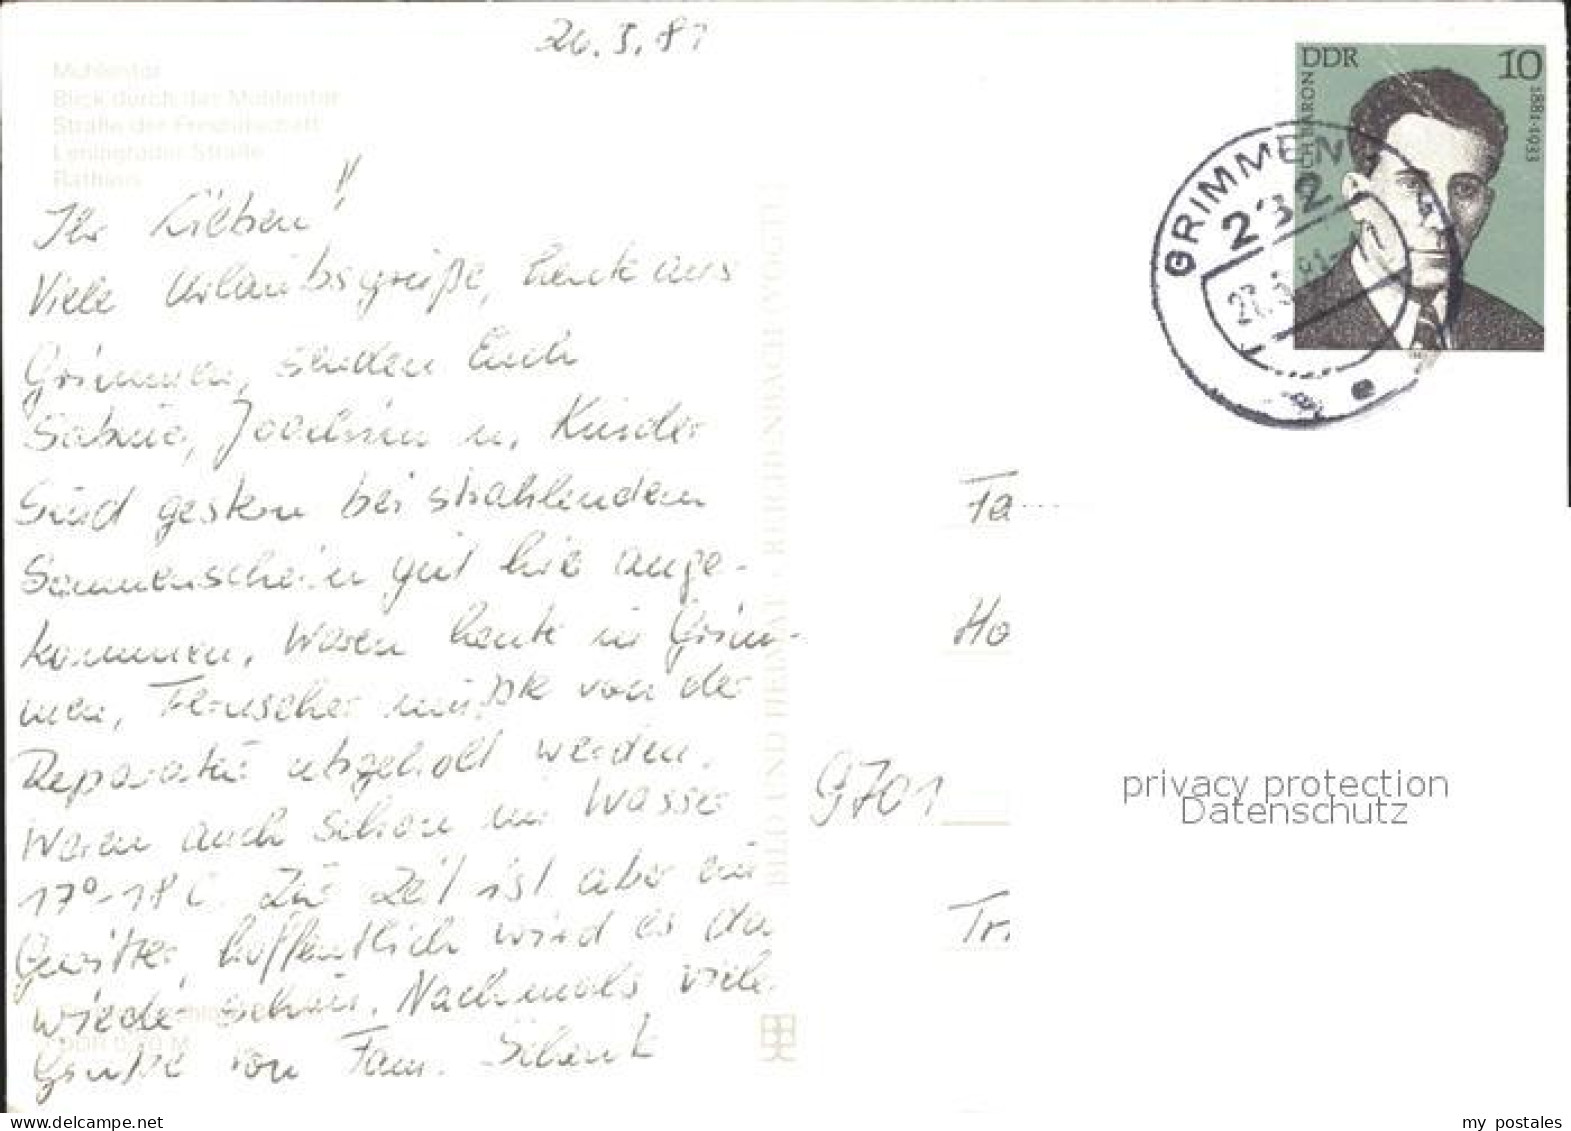 26.5.81
Mühlentor
Blick durch das Mühlentor
Straße der Freundschaft
Leningrader Straße
Rathaus
Ihr Lieben!
Viele Urlaubsgrüße, heute aus
Grimmen, senden Euch
Sabine, Joachim u. Kinder
Sind gestern bei strahlendem
Sonnenschein gut hier ange-
kommen. Waren heute in Grim-
men, Fernseher mußte von der
Reparatur abgeholt werden.
Waren auch schon im Wasser
17°-18 C. Zur Zeit ist aber ein
Gewitter, hoffentlich wird es da
wieder schön. Nochmals viele
Grüße von Fam. Schenk
DDR 0,20 M
BILD UND HEIMAT · REICHENBACH (VOGTL)
DDR
10
BARON
1881-1933
GRIMMEN
232
Fa
Ho
9701
Tr.
privacy protection
Datenschutz
www.delcampe.net
my_postales